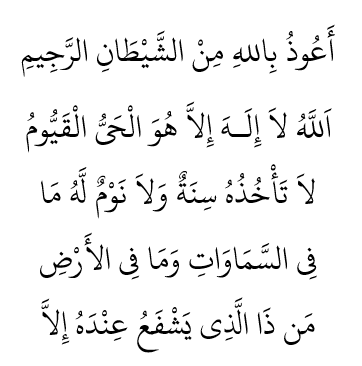 أَعُوذُ بِاللهِ مِنْ الشَّيْطَانِ الرَّجِيمِ
اَللَّهُ لاَ إِلَــهَ إِلاَّ هُوَ الْحَىُّ الْقَيُّومُ
لاَ تَأْخُذُهُ سِنَةٌ وَلاَ نَوْمٌ لَّهُ مَا
فِى السَّمَاوَاتِ وَمَا فِى الأَرْضِ
مَن ذَا الَّذِى يَشْفَعُ عِنْدَهُ إِلاَّ